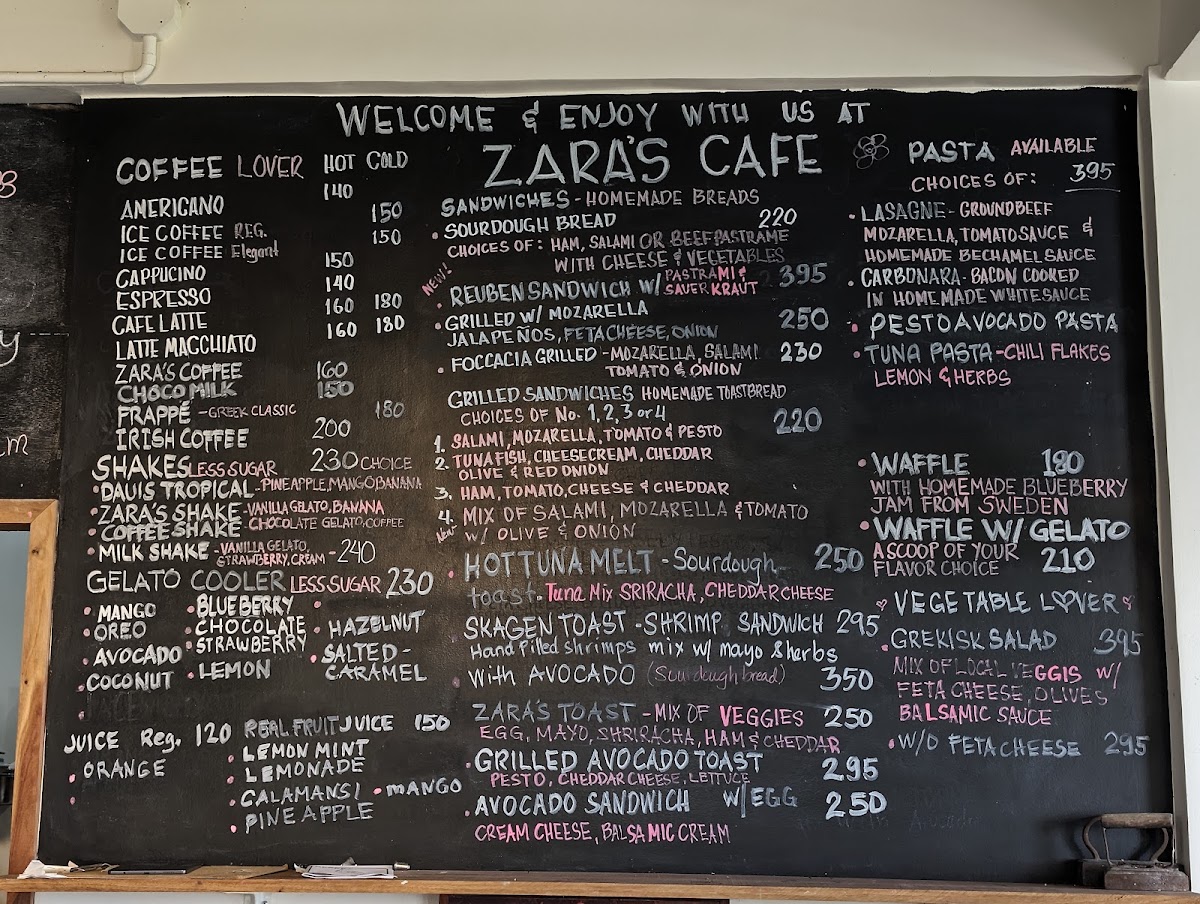 WELCOME & ENJOY WITH US AT
ZARA'S CAFE
COFFEE LOVER HOT COLD
AMERICANO 140
ICE COFFEE REG. 150
ICE COFFEE Elegant 150
CAPPUCINO 150
ESPRESSO 140
CAFE LATTE 160 180
LATTE MACCHIATO 160 180
ZARA'S COFFEE 160
CHOCO MILK 150
FRAPPÉ - GREEK CLASSIC 180
IRISH COFFEE 200
SHAKES LESS SUGAR 230 CHOICE
• DAVIS TROPICAL - PINEAPPLE, MANGO BANANA
• ZARA'S SHAKE - VANILLA GELATO, BAWANA
• COFFEE SHAKE - CHOCOLATE GELATO, COFFEE
• MILK SHAKE - VANILLA GELATO, STRAWBERRY, CREAM - 240
GELATO COOLER LESS SUGAR 230
• MANGO
• OREO
• AVOCADO
• COCONUT
• BLUEBERRY
• CHOCOLATE
• STRAWBERRY
• LEMON
• HAZELNUT
• SALTED-
CARAMEL
JUICE Reg. 120
• ORANGE
REAL FRUIT JUICE 150
• LEMON MINT
• LEMONADE
• CALAMANSI • MANGO
• PINEAPPLE
SANDWICHES - HOMEMADE BREADS
• SOURDOUGH BREAD 220
CHOICES OF: HAM, SALAMI OR BEEF PASTRAME
WITH CHEESE & VEGETABLES
NEW!!
• REUBEN SANDWICH W/ PASTRAMI & SAUERKRAUT 395
• GRILLED W/ MOZARELLA 250
JALAPEÑOS, FETA CHEESE, ONION
• FOCCACIA GRILLED - MOZARELLA, SALAMI 230
TOMATO & ONION
GRILLED SANDWICHES HOMEMADE TOASTBREAD
CHOICES OF No. 1, 2, 3 or 4 220
1. SALAMI, MOZARELLA, TOMATO & PESTO
2. TUNA FISH, CHEESECREAM, CHEDDAR
OLIVE & RED ONION
3. HAM, TOMATO, CHEESE & CHEDDAR
4. MIX OF SALAMI, MOZARELLA & TOMATO
NEW W/ OLIVE & ONION
• HOT TUNA MELT - Sourdough 250
toast - Tuna Mix SRIRACHA, CHEDDAR CHEESE
SKAGEN TOAST - SHRIMP SANDWICH 295
Hand Pilled shrimps mix w/ mayo & herbs
• With AVOCADO (Sourdough bread) 350
ZARA'S TOAST - MIX OF VEGGIES 250
EGG, MAYO, SHRIRACHA, HAM & CHEDDAR
• GRILLED AVOCADO TOAST 295
PESTO, CHEDDAR CHEESE, LETTUCE
• AVOCADO SANDWICH W/ EGG 250
CREAM CHEESE, BALSAMIC CREAM
PASTA AVAILABLE
CHOICES OF: 395
• LASAGNE - GROUNDBEEF
MOZARELLA, TOMATO SAUCE &
HOMEMADE BECHAMEL SAUCE
• CARBONARA - BACON COOKED
IN HOMEMADE WHITE SAUCE
• PESTO AVOCADO PASTA
• TUNA PASTA - CHILI FLAKES
LEMON & HERBS
• WAFFLE 180
WITH HOMEMADE BLUEBERRY
JAM FROM SWEDEN
• WAFFLE W/ GELATO
A SCOOP OF YOUR 210
FLAVOR CHOICE
♡ VEGETABLE LOVER ♡
• GREKISK SALAD 395
MIX OF LOCAL VEGGIS W/
FETA CHEESE, OLIVES
BALSAMIC SAUCE
• W/O FETA CHEESE 295